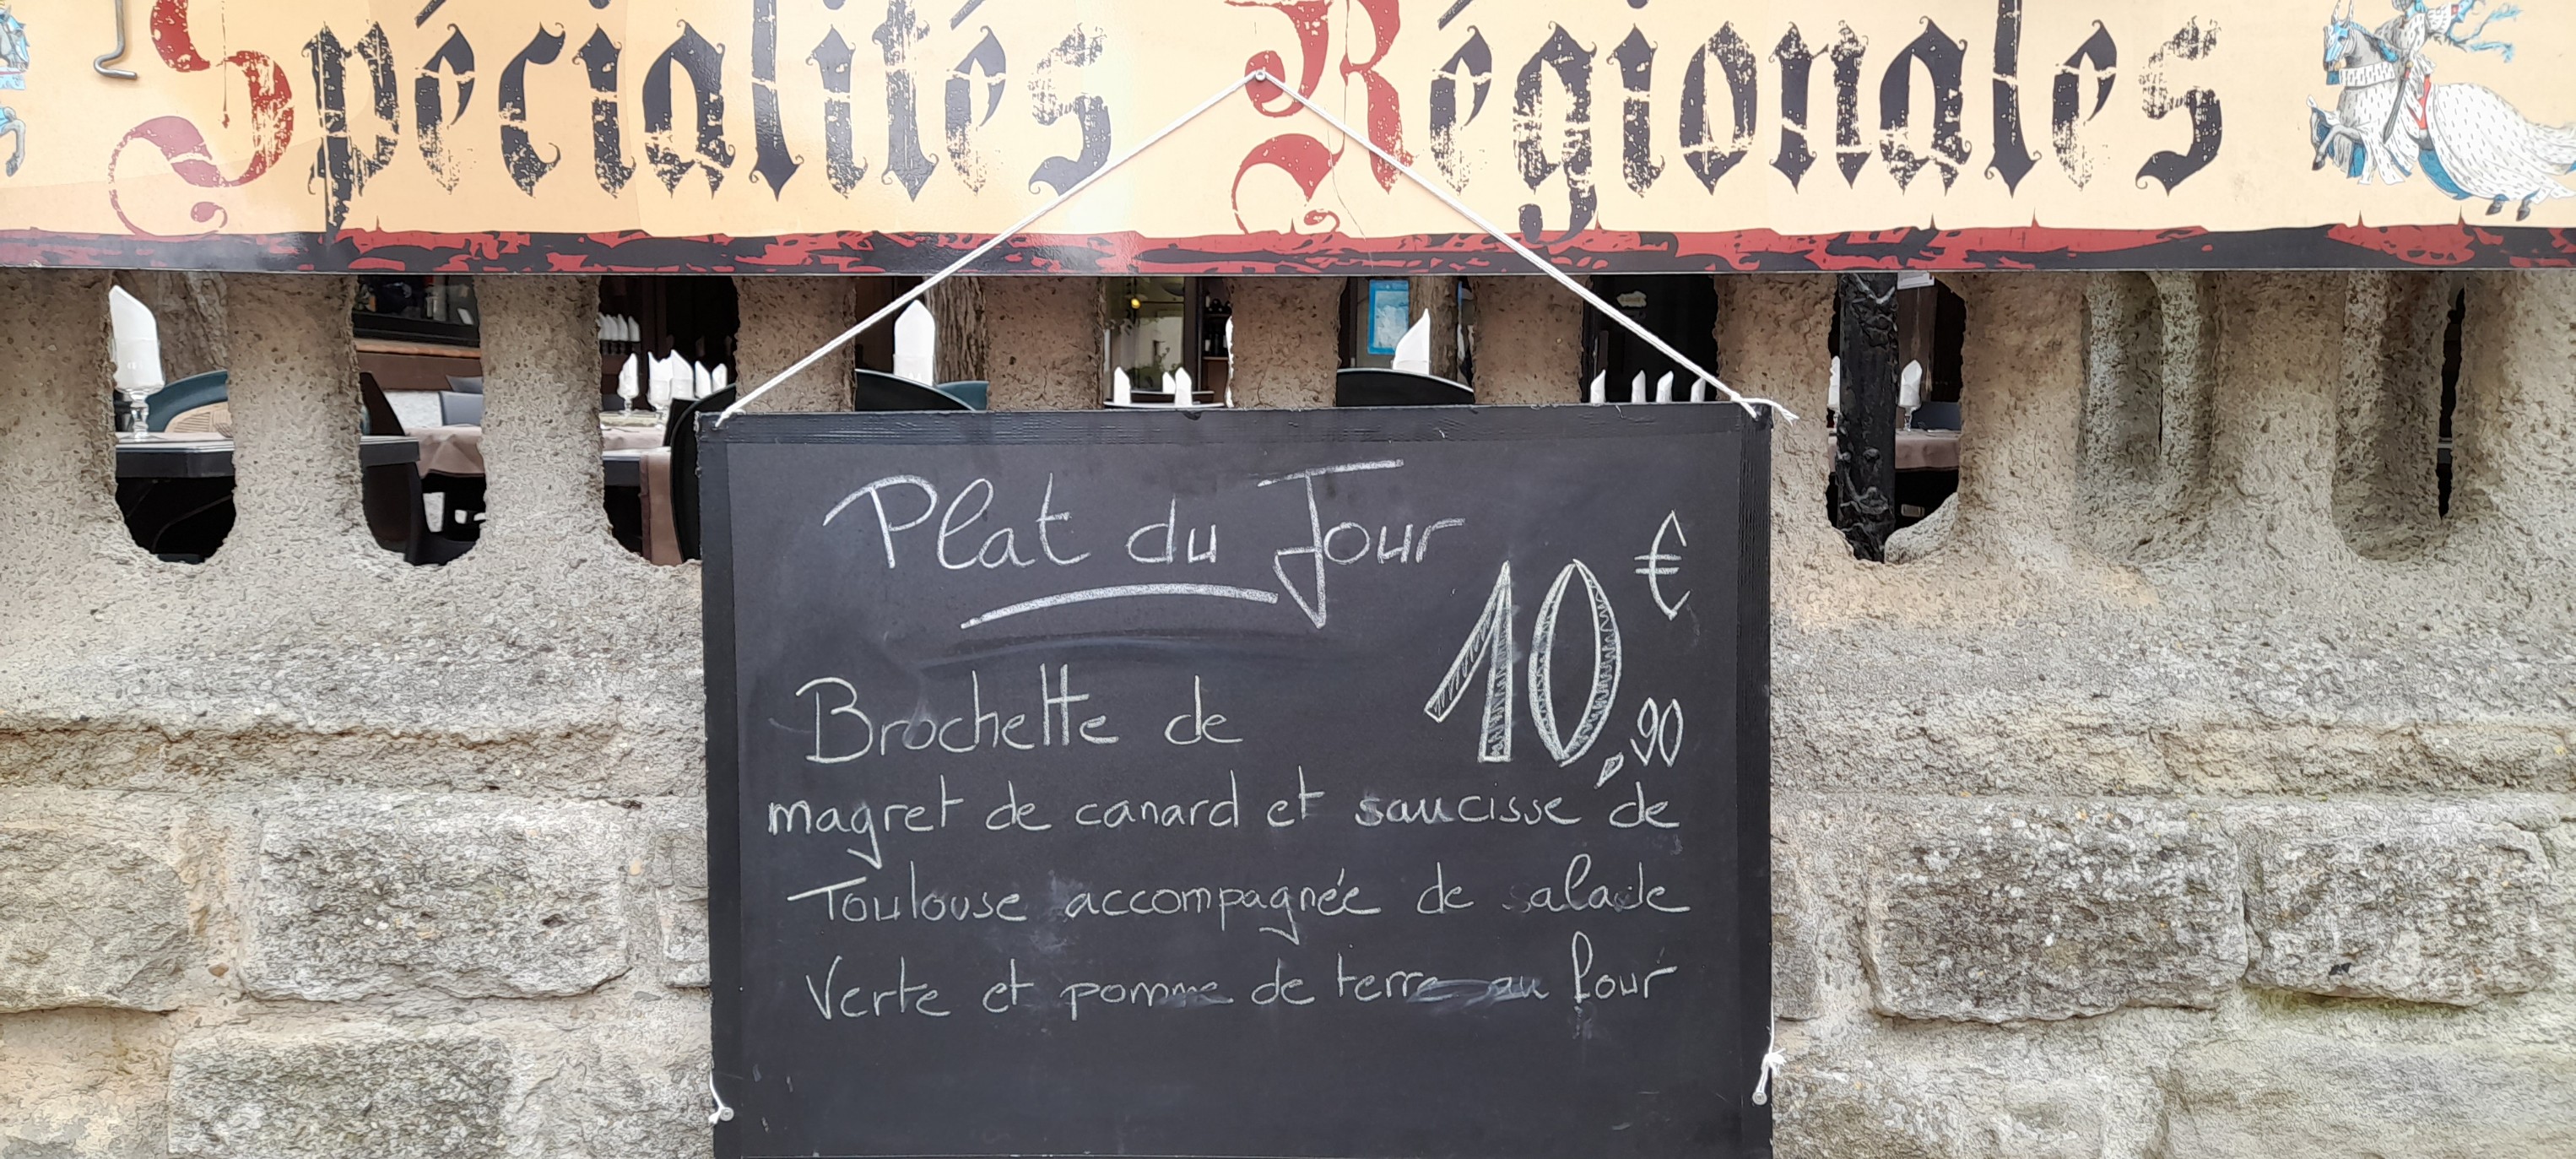 Spécialités Régionales
Plat du Jour
10,90 €
Brochette de
magret de canard et saucisse de
Toulouse accompagnée de salade
Verte et pomme de terre au four